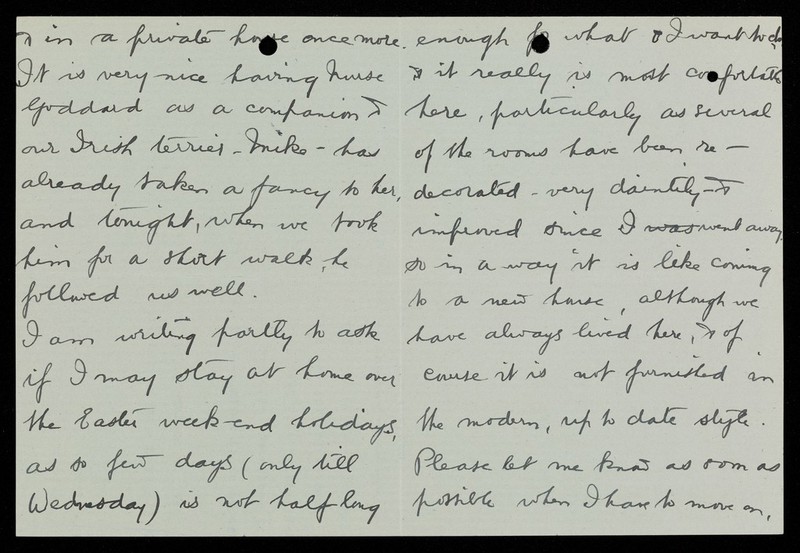 & in a private house once more.
It is very nice having Nurse
Goddard as a companion &
our Irish terrier - Mike - has
already taken a fancy to her,
and tonight, when we took
him for a short walk, he
followed us well.
I am writing partly to ask
if I may stay at home over
the Easter week-end holidays,
as so few days (only till
Wednesday) is not half long
enough for what I want to do
& it really is most comfortable
here, particularly as several
of the rooms have been re-
decorated - very daintily - &
improved since I was went away,
so in a way it is like coming
to a new house, although we
have always lived here, & of
course it is not furnished in
the modern, up to date style.
Please let me know as soon as
possible when I have to move on,